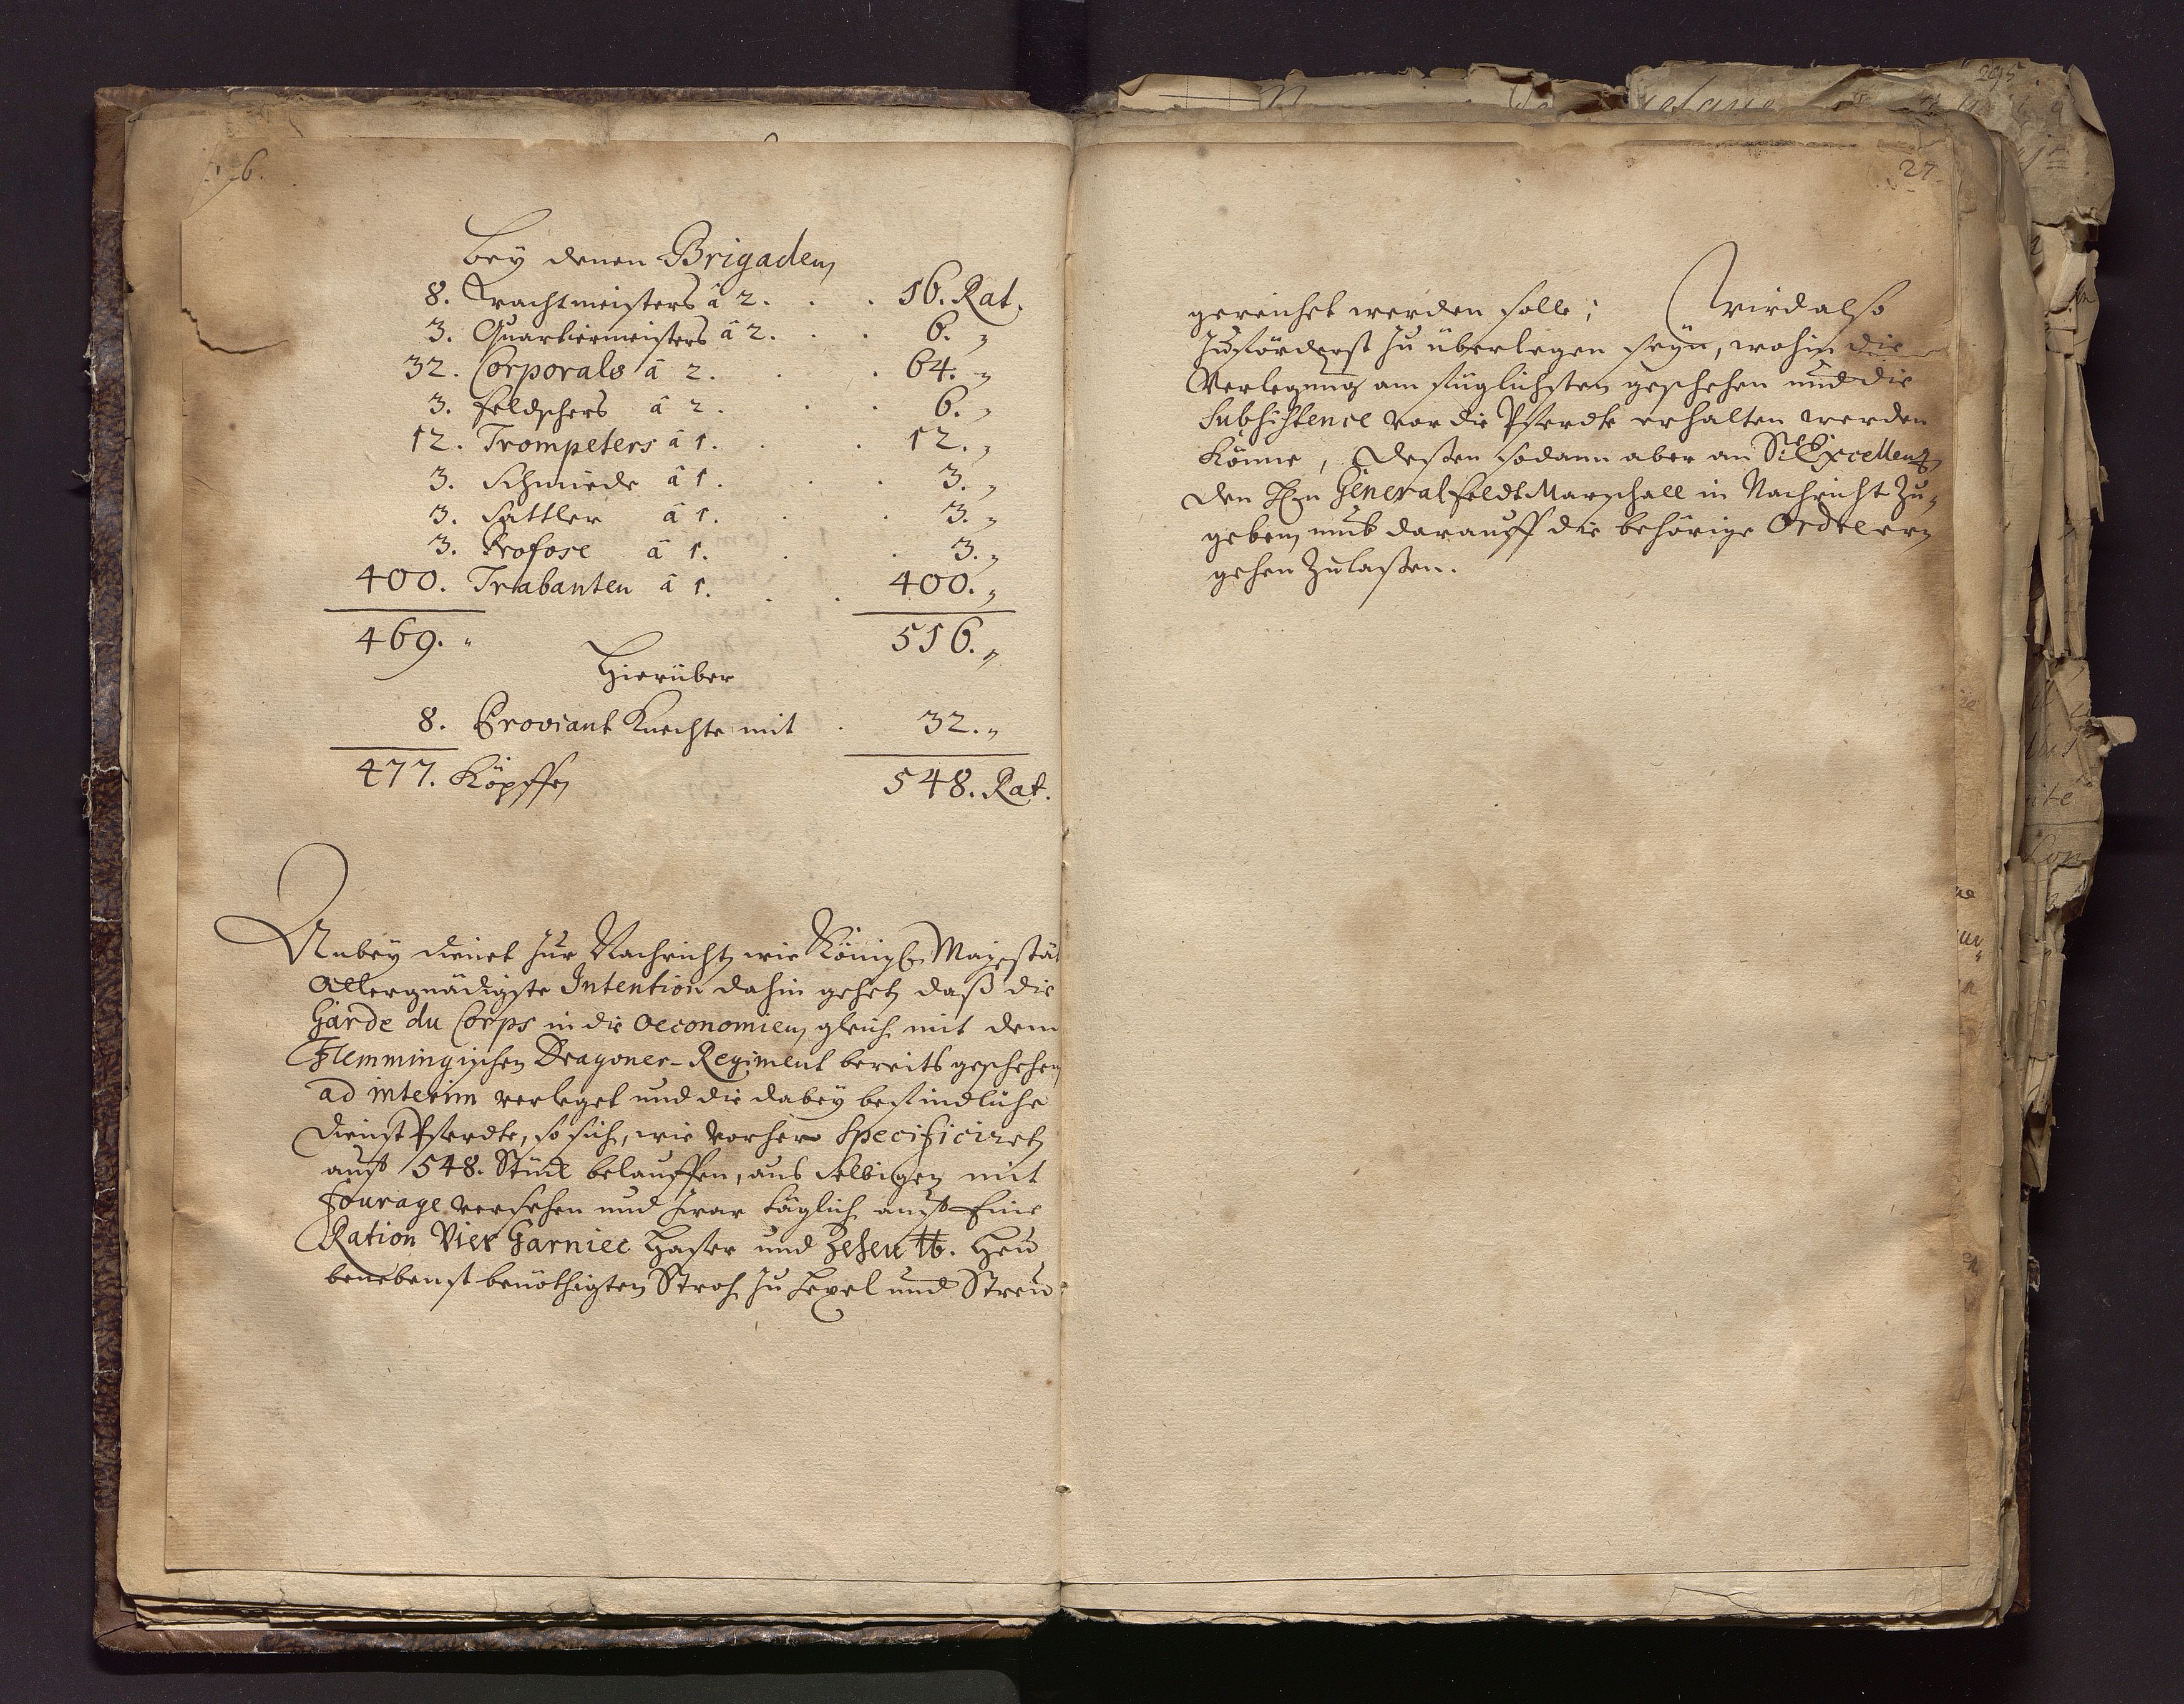 6.
Bey denen Brigaden
8. Wachtmeisters â 2. . . 16. Rat.
3. Quartiermeisters â 2. . . 6. "
32. Corporals â 2. . . 64. "
3. Feldschers â 2. . . 6. "
12. Trompeters â 1. . . 12. "
3. Schmiede â 1. . . 3. "
3. Sattler â 1. . . 3. "
3. Profose â 1. . . 3. "
400. Trabanten â 1. . . 400. "
469. " 516. "
Hierüber
8. Proviant Knechte mit . 32. "
477. Köpffe 548. Rat.
Anbey dienet zur Nachricht, wie Königl. Majestät
Allergnädigste Intention dahin gehet, daß die
Garde du Corps in die Oeconomien, gleich mit dem
Flemmingischen Dragoner-Regiment bereits geschehen
ad interim verleget und die dabey befindliche
Dienst Pferdte, so sich, wie vorhero specificiret,
auf 548. Stück belauffen, aus selbigen mit
Fourage versehen und zwar täglich auf Eine
Ration Vier Garniec Hafer und Zehen ℔. Heu
benebenst benöthigten Stroh zu Hexel und Streu
27.
gereichet werden solle; Wird also
zuförderst zu überlegen seyn, wohin die
Verlegung am füglichsten geschehen und die
Subsistence vor die Pferdte erhalten werden
Könne, Deßen sodann aber an Sr. Excellenz
den Hrn General Feldt Marschall in Nachricht zu
geben, und darauff die behörige Ordre er
gehen zulaßen.
295